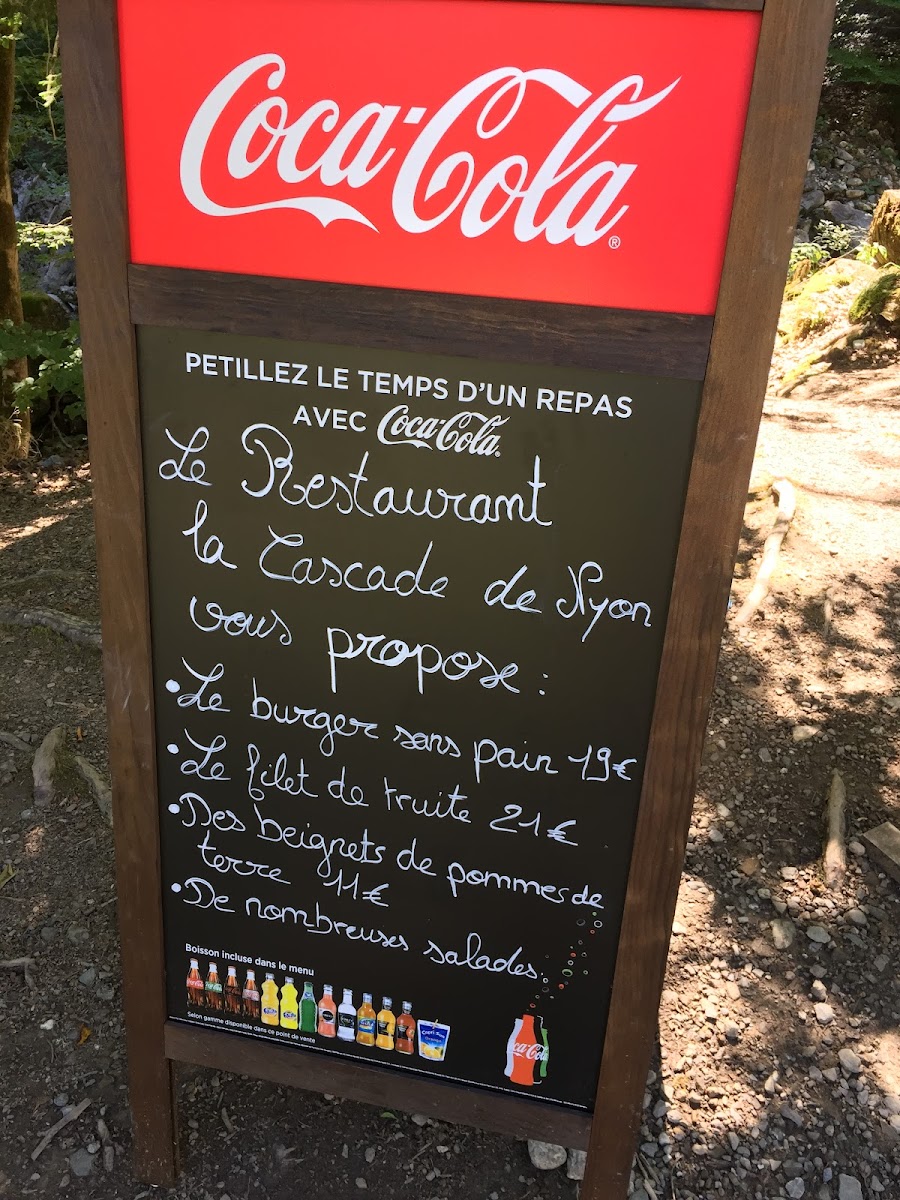 Coca-Cola®
PETILLEZ LE TEMPS D'UN REPAS
AVEC Coca-Cola®
Le Restaurant
la Cascade de Nyon
vous propose :
• Le burger sans pain 19€
• Le filet de truite 21€
• Des beignets de pommes de
terre 11€
• De nombreuses salades.
Boisson incluse dans le menu
Selon gamme disponible dans ce point de vente
Capri-Sun
Coca-Cola